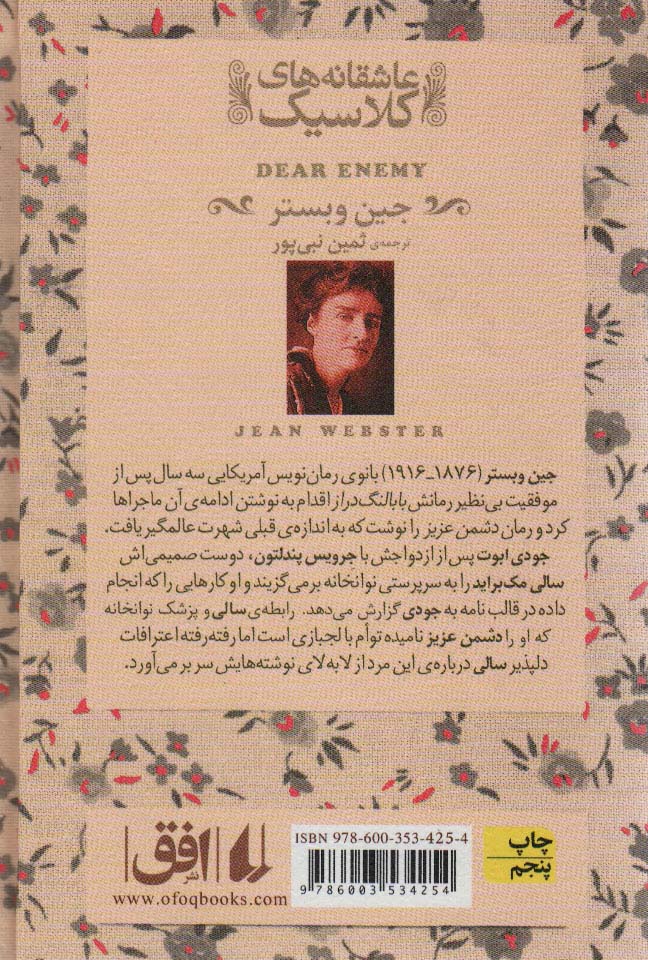 عاشقانه‌های
کلاسیک
DEAR ENEMY
جین وبستر
ترجمه‌ی ثمین نبی‌پور
JEAN WEBSTER
جین وبستر (۱۸۷۶-۱۹۱۶) بانوی رمان‌نویس آمریکایی سه سال پس از
موفقیت بی‌نظیر رمانش بابالنگ‌دراز اقدام به نوشتن ادامه‌ی آن ماجراها
کرد و رمان دشمن عزیز را نوشت که به اندازه‌ی قبلی شهرت عالمگیر یافت.
جودی ابوت پس از ازدواجش با جرویس پندلتون، دوست صمیمی‌اش
سالی مک‌براید را به سرپرستی نوانخانه برمی‌گزیند و او کارهایی را که انجام
داده در قالب نامه به جودی گزارش می‌دهد. رابطه‌ی سالی و پزشک نوانخانه
که او را دشمن عزیز نامیده توأم با لجبازی است اما رفته‌رفته اعترافات
دلپذیر سالی درباره‌ی این مرد از لابه‌لای نوشته‌هایش سر بر می‌آورد.
چاپ
پنجم
ISBN 978-600-353-425-4
9 786003 534254
نشر افق
www.ofoqbooks.com